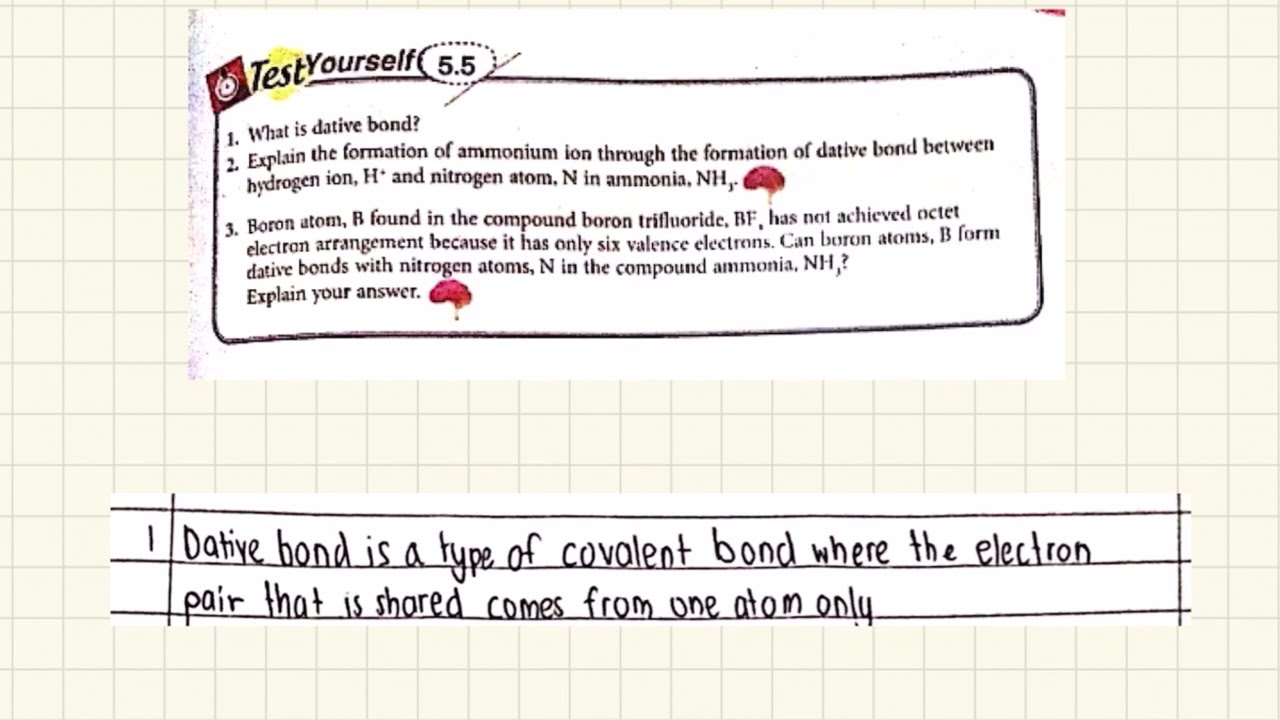 TestYourself 5.5
1. What is dative bond?
2. Explain the formation of ammonium ion through the formation of dative bond between
hydrogen ion, H⁺ and nitrogen atom, N in ammonia, NH₃.
3. Boron atom, B found in the compound boron trifluoride, BF₃ has not achieved octet
electron arrangement because it has only six valence electrons. Can boron atoms, B form
dative bonds with nitrogen atoms, N in the compound ammonia, NH₃?
Explain your answer.
1 Dative bond is a type of covalent bond where the electron
pair that is shared comes from one atom only